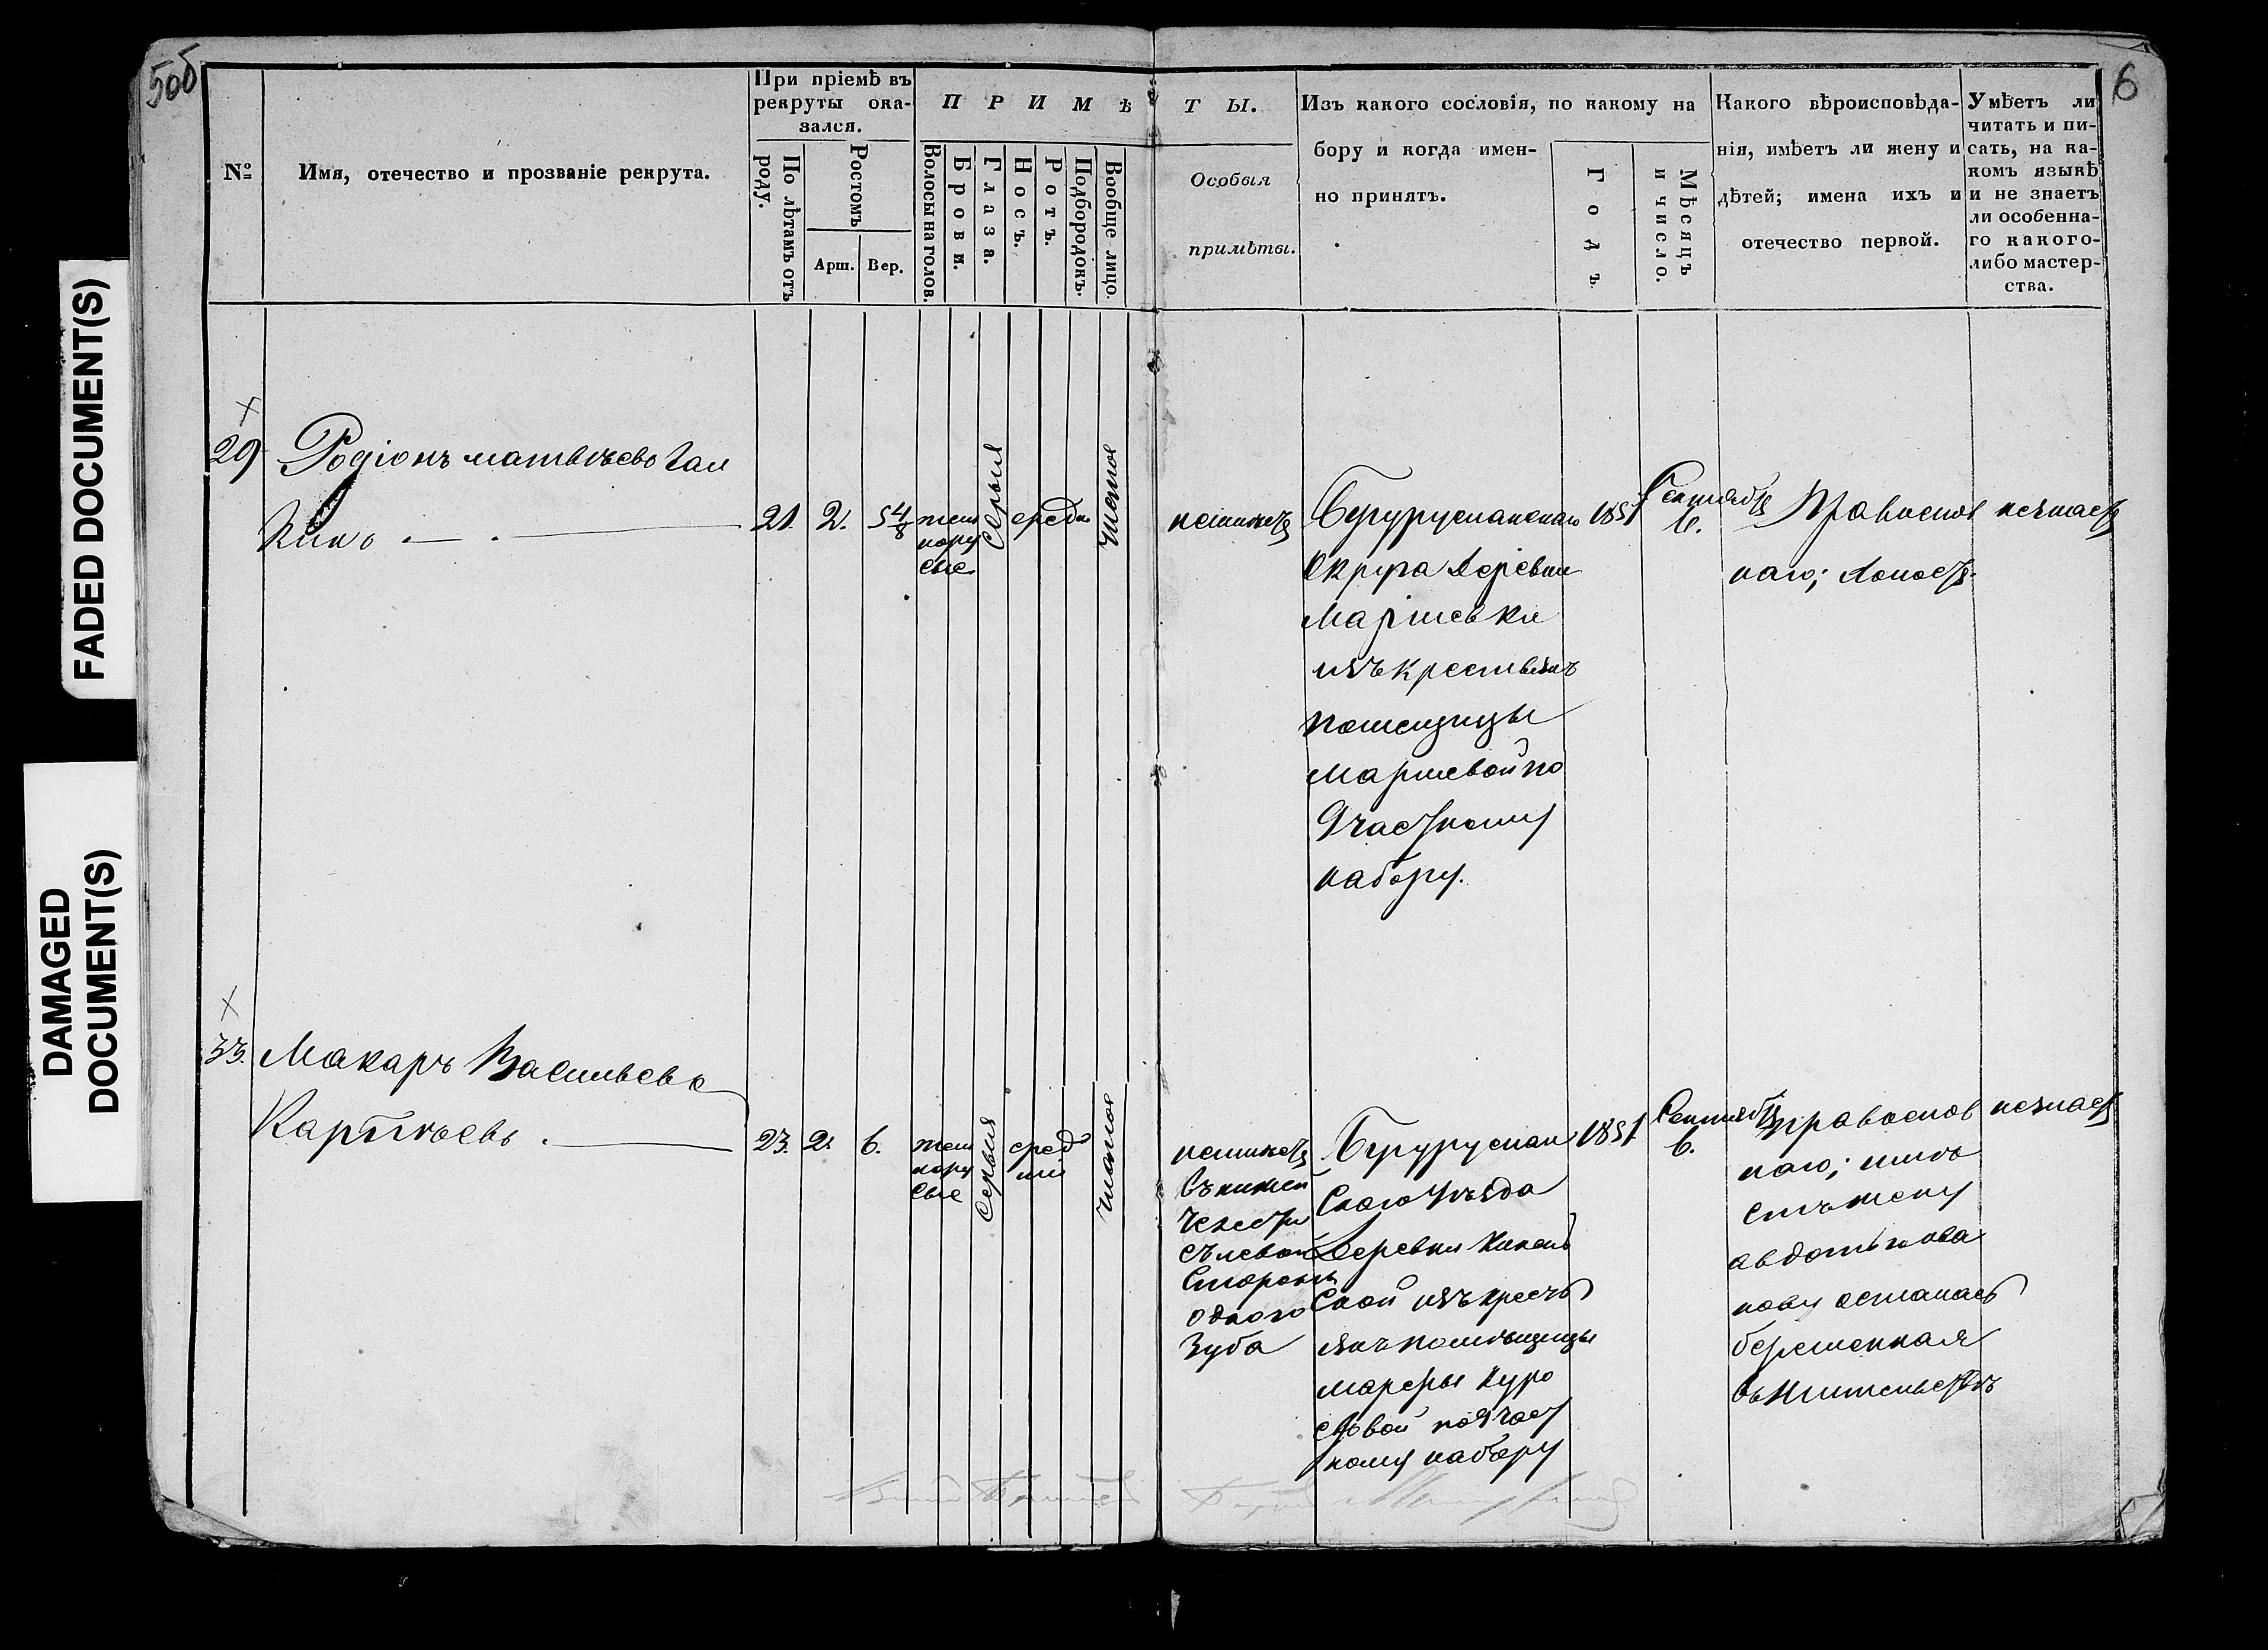 FADED DOCUMENT(S)
DAMAGED
DOCUMENT(S)
5об
6
№
Имя, отечество и прозваніе рекрута.
При пріемѣ въ
рекруты ока-
зался.
По лѣтамъ отъ
роду.
Ростомъ
Арш.
Вер.
ПРИМѢТЫ.
Волосы на голов.
Брови.
Глаза.
Носъ.
Ротъ.
Подбородокъ.
Вообще лицо.
Особыя
примѣты.
Изъ какого сословія, по какому на
бору и когда имен-
но принятъ.
Годъ
Мѣсяцъ
и число.
Какого вѣроисповѣда-
нія, имѣетъ ли жену и
дѣтей; имена ихъ и
отечество первой.
Умѣетъ ли
читать и пи-
сать, на ка-
комъ языкѣ
и не знаетъ
ли особенна-
го какого-
либо мастер-
ства.
29
Родіонъ матвѣевъ Гал
кинъ
21. 2. 5 4/8
темн
нору
сые
Серыя
средн
чистое
неимеетъ
Бугурусланскаго
Округа деревни
изъ крестьянъ
помещицы
по
9 частному
набору.
1851
Сентября
6.
Православ
наго; холостъ.
незнаетъ
33.
Макаръ Васильевъ
23. 2. 6.
темн
нору
сые
Серыя
сред
ніи
чистое
неимеетъ
въ нижней
челюсти
съ левой
Стороны
одного
Зуба
Бугуруслан
Скаго Уѣзда
Деревни
Ской изъ кресть
янъ помѣщицы
Куро
едовой по 9 част
ному набору
1851.
Сентября
6.
православ
наго; имѣ
етъ жену
авдотью ива
нову осталась
беременная
въ жительствѣ
незнаетъ